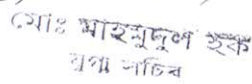 মোঃ মাহমুদুল হক
যুগ্ম সচিব